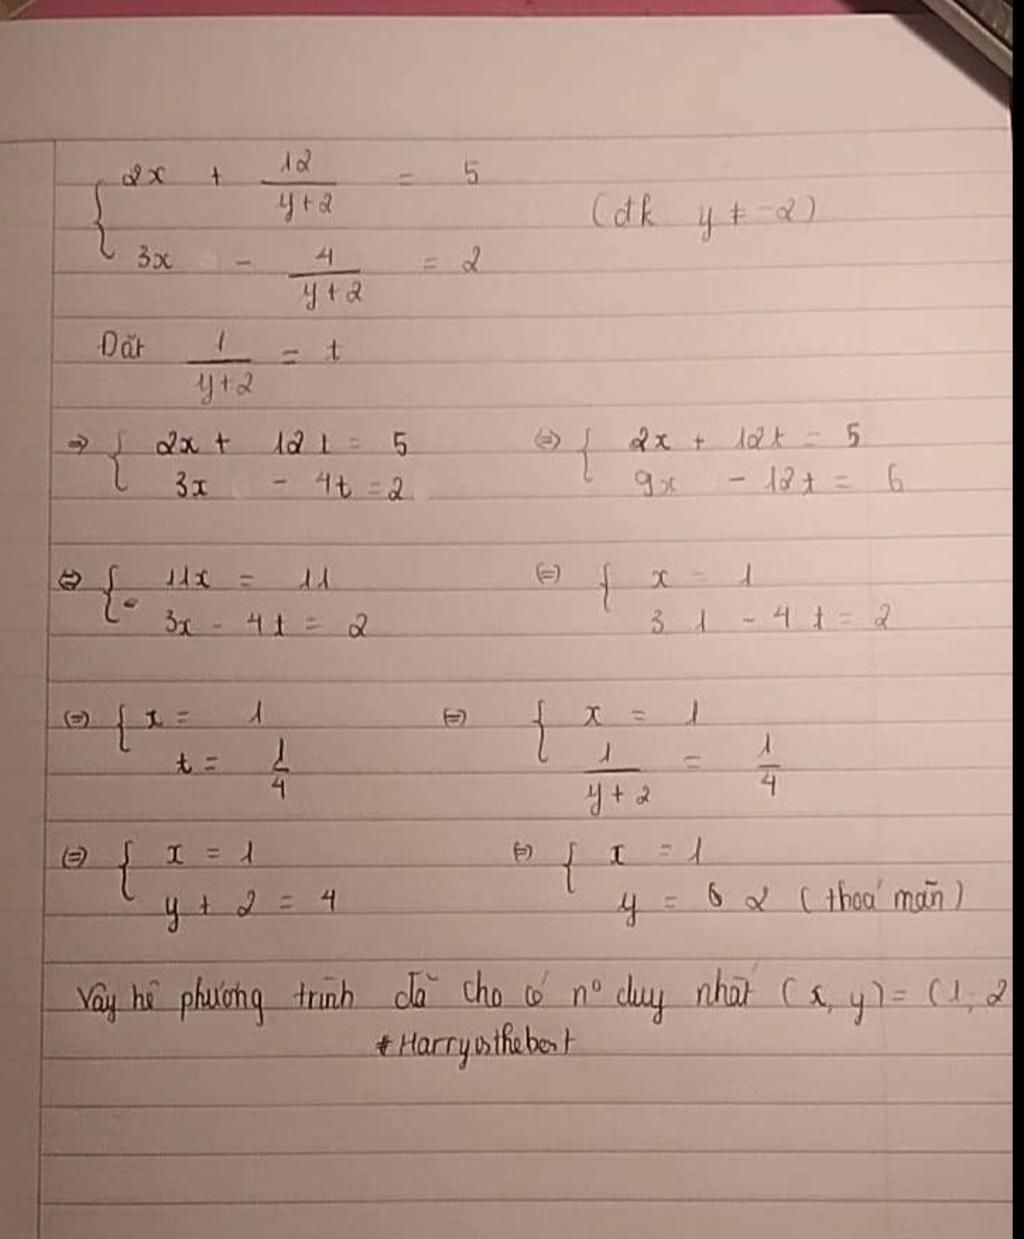 { 2x + 12/(y+2) = 5 (đk y ≠ -2)
3x - 4/(y+2) = 2
Đặt 1/(y+2) = t
⇒ { 2x + 12t = 5 ⇔ { 2x + 12t = 5
3x - 4t = 2 9x - 12t = 6
⇔ { 11x = 11 ⇔ { x = 1
3x - 4t = 2 3 1 - 4t = 2
⇔ { x = 1 ⇔ { x = 1
t = 1/4 1/(y+2) = 1/4
⇔ { x = 1 ⇔ { x = 1
y + 2 = 4 y = 2 (thoả mãn)
Vậy hệ phương trình đã cho có nº duy nhất (x, y) = (1; 2
#Harryisthebest